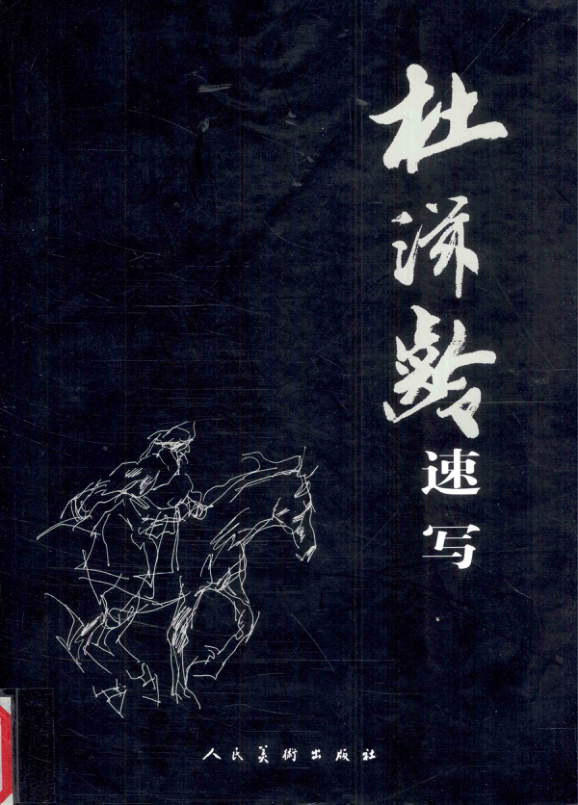 杜滋齡
速写
人民美術出版社